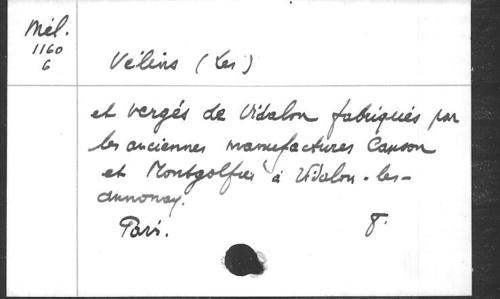 Mél.
1160
6
Vélins (Les)
et vergés de Vidalon fabriqués par
les anciennes manufactures Canson
et Montgolfier à Vidalon-les-
Annonay.
Paris. 8.